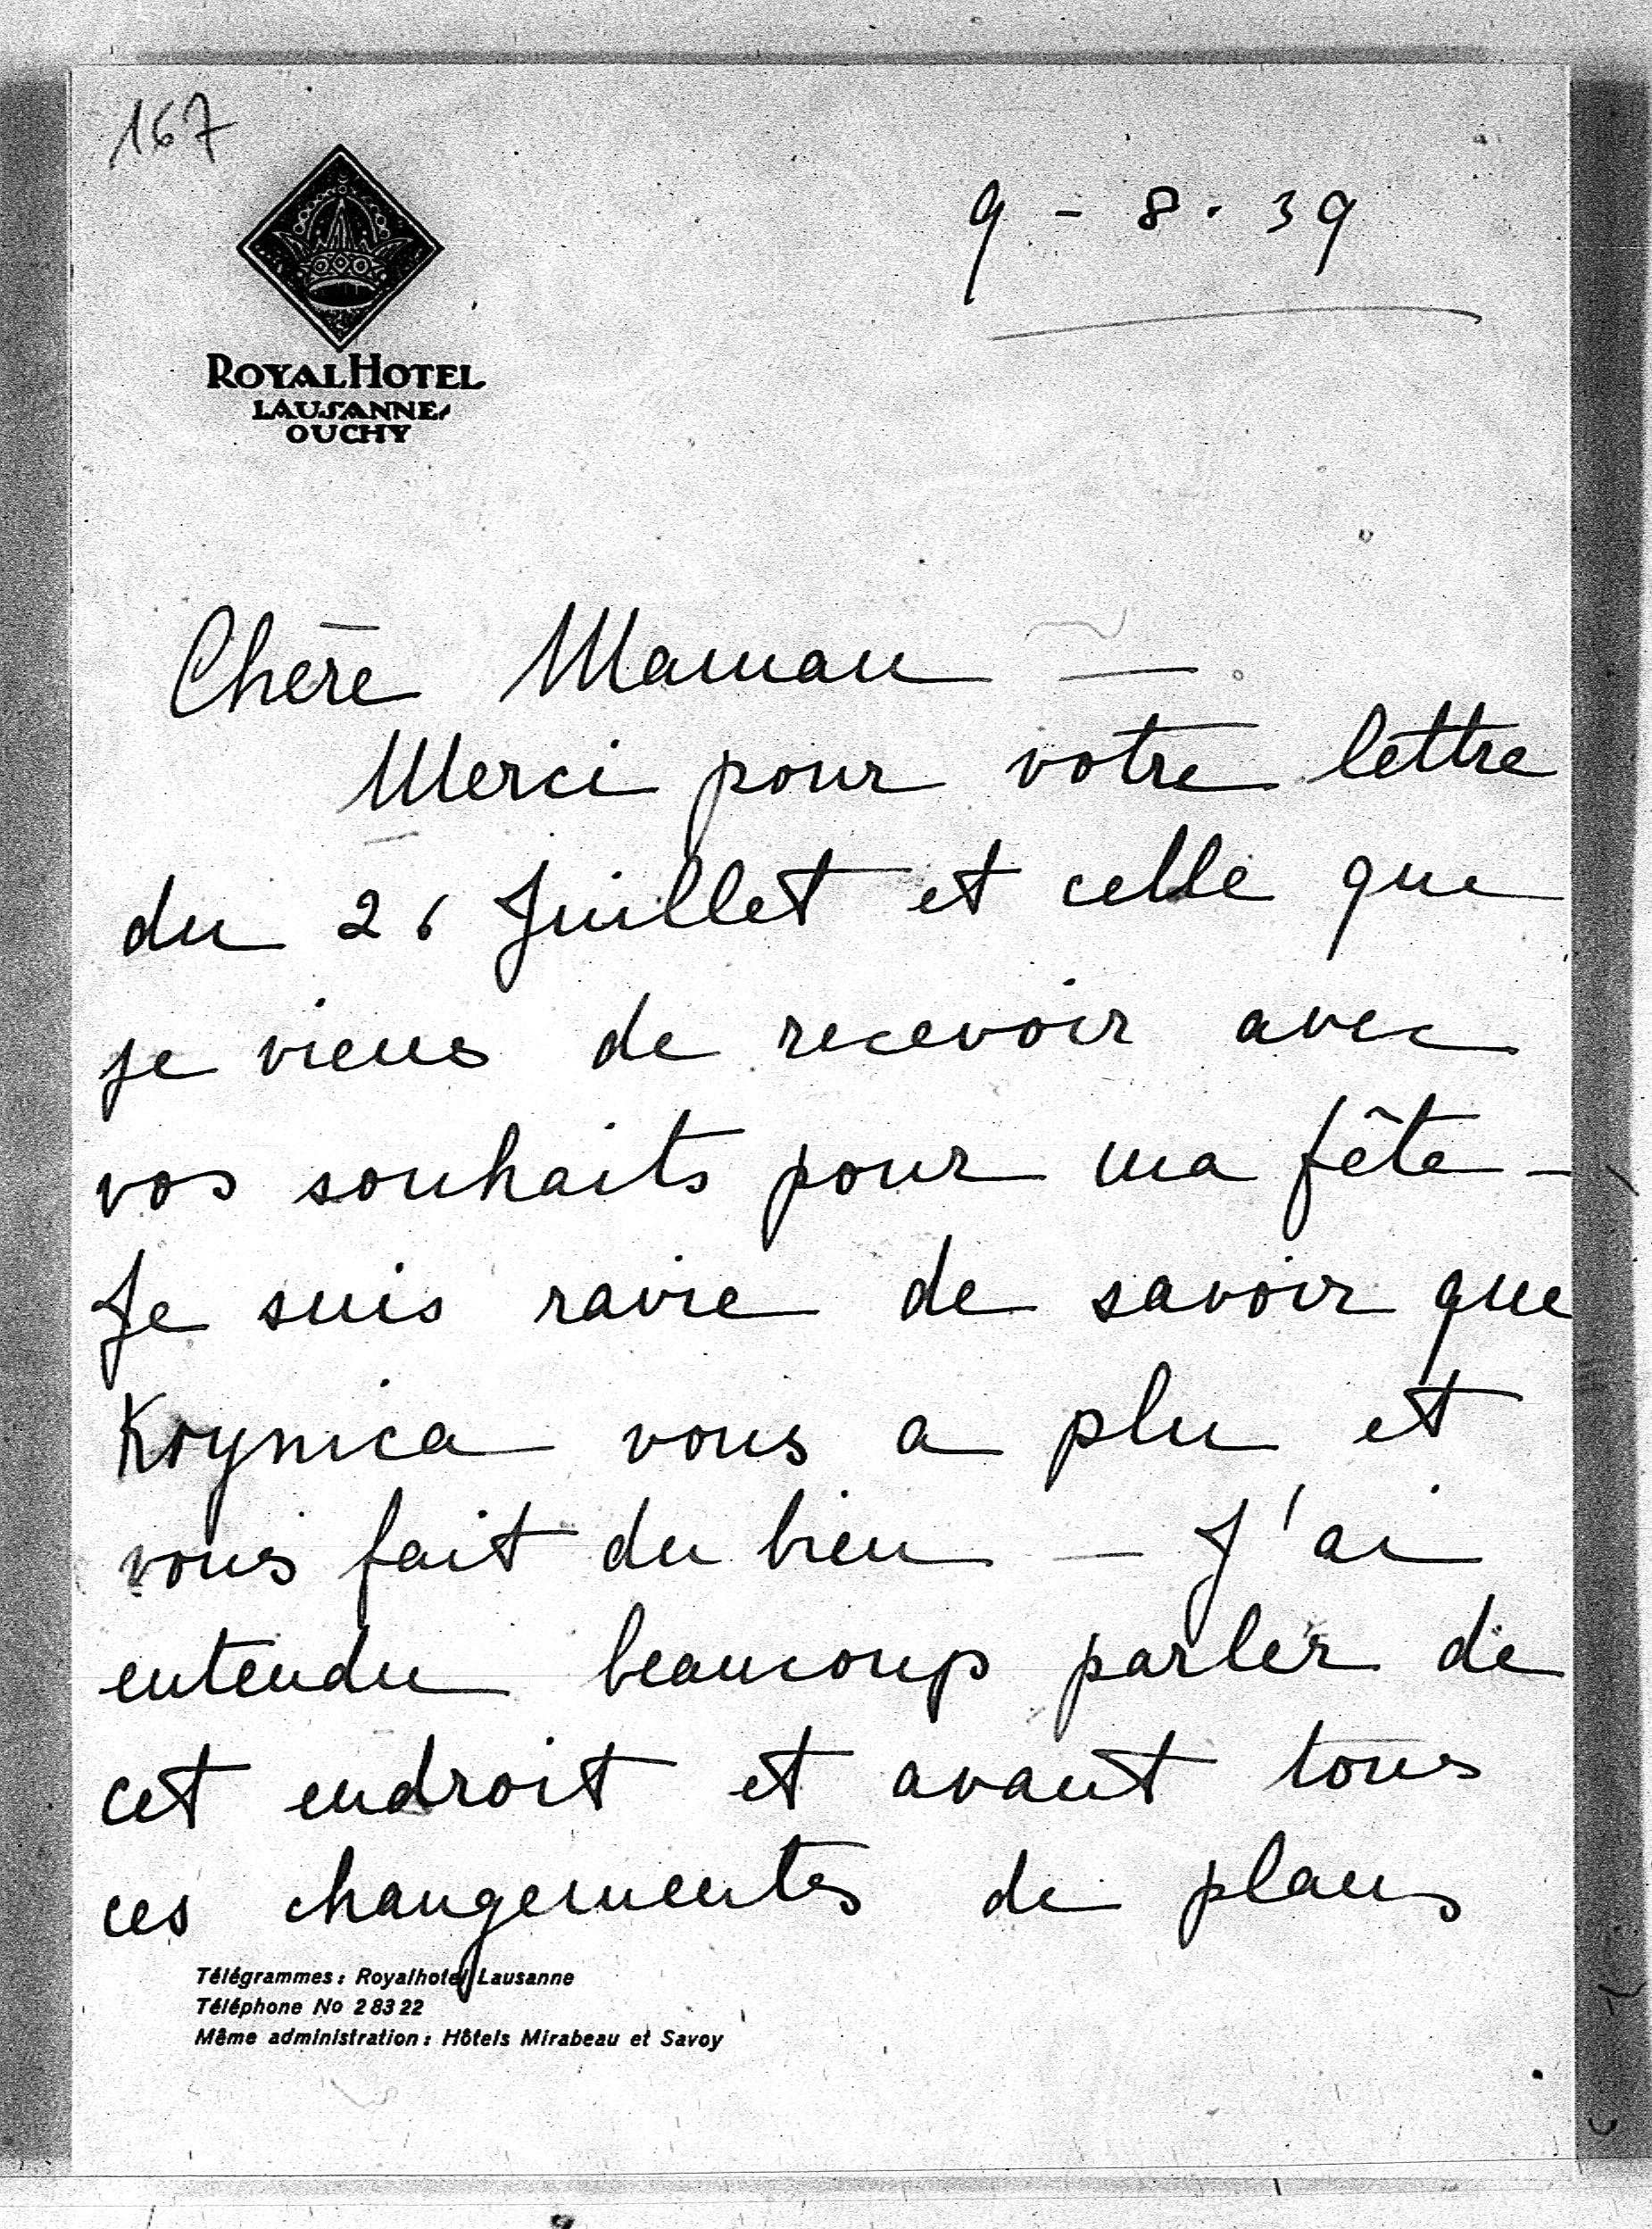 167
9 - 8 · 39
ROYAL HOTEL
LAUSANNE,
OUCHY
Chère Maman —
Merci pour votre lettre
du 26 Juillet et celle que
je viens de recevoir avec
vos souhaits pour ma fête –
Je suis ravie de savoir que
Krynica vous a plu et
vous fait du bien — J'ai
entendu beaucoup parler de
cet endroit et avant tous
ces changements de plans
Télégrammes: Royalhotel Lausanne
Téléphone No 28322
Même administration: Hôtels Mirabeau et Savoy